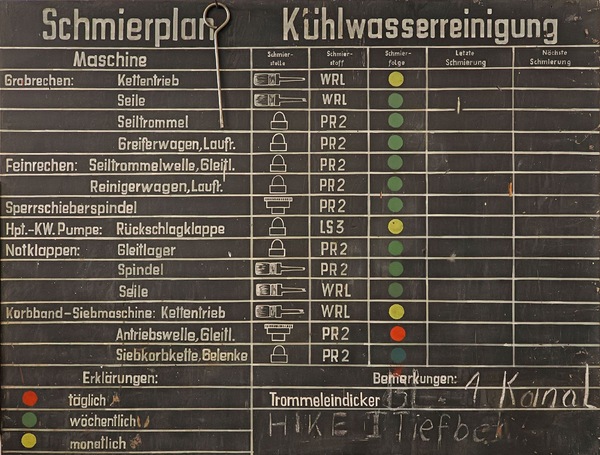 Schmierplan Kühlwasserreinigung
Maschine Schmier-stelle Schmier-stoff Schmier-folge Letzte Schmierung Nächste Schmierung
Grobrechen: Kettentrieb WRL
Seile WRL
Seiltrommel PR2
Greiferwagen, Laufr. PR2
Feinrechen: Seiltrommelwelle, Gleitl. PR2
Reinigerwagen, Laufr. PR2
Sperrschieberspindel PR2
Hpt.-KW. Pumpe: Rückschlagklappe LS3
Notklappen: Gleitlager PR2
Spindel PR2
Seile WRL
Korbband-Siebmaschine: Kettentrieb WRL
Antriebswelle, Gleitl. PR2
Siebkorbkette, Gelenke PR2
Erklärungen: Bemerkungen:
täglich Trommeleindicker 1 Kanal
wöchentlich HIKE I
monatlich